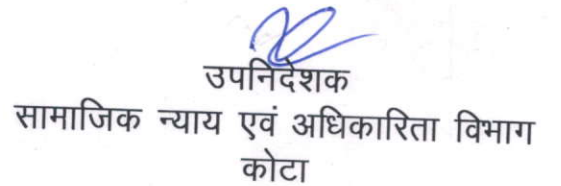 उपनिदेशक
सामाजिक न्याय एवं अधिकारिता विभाग
कोटा